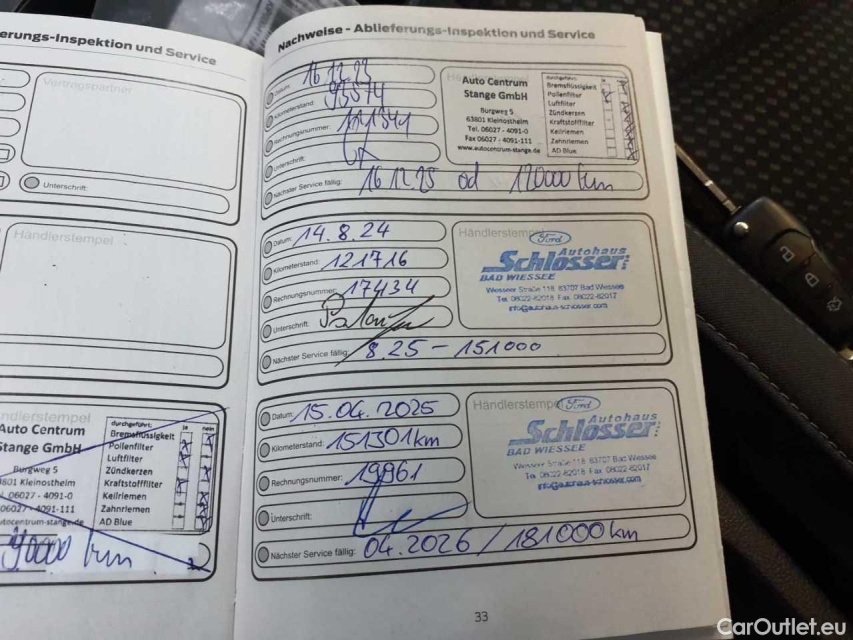 erungs-Inspektion und Service
Vertragspartner
Unterschrift:
Händlerstempel
ndlerstempel
Auto Centrum
Stange GmbH
Burgweg 5
3801 Kleinostheim
06027 - 4091-0
06027 - 4091-111
utocentrum-stange.de
durchgeführt: ja nein
Bremsflüssigkeit
Pollenfilter
Luftfilter
Zündkerzen
Kraftstofffilter
Keilriemen
Zahnriemen
AD Blue
90000 km
Nachweise - Ablieferungs-Inspektion und Service
Datum: 16.12.23
Kilometerstand: 93574
Rechnungsnummer: 121341
Unterschrift:
Nächster Service fällig: 16.12.25 od 12000 km
Auto Centrum
Stange GmbH
Burgweg 5
63801 Kleinostheim
Tel. 06027 - 4091-0
Fax 06027 - 4091-111
www.autocentrum-stange.de
durchgeführt:
Bremsflüssigkeit
Pollenfilter
Luftfilter
Zündkerzen
Kraftstofffilter
Keilriemen
Zahnriemen
AD Blue
Datum: 14.8.24
Kilometerstand: 121716
Rechnungsnummer: 17434
Unterschrift:
Nächster Service fällig: 8.25 - 151000
Händlerstempel
Ford
Autohaus
Schlosser
BAD WIESSEE
Wiesseer Straße 118 83707 Bad Wiessee
Tel. 08022-82018 Fax. 08022-82017
info@autohaus-schlosser.com
Datum: 15.04.2025
Kilometerstand: 151301km
Rechnungsnummer: 19961
Unterschrift:
Nächster Service fällig: 04.2026 / 181000km
Händlerstempel
Ford
Autohaus
Schlosser
BAD WIESSEE
Wiesseer Straße 118 83707 Bad Wiessee
Tel. 08022-82018 Fax. 08022-82017
info@autohaus-schlosser.com
33
CarOutlet.eu